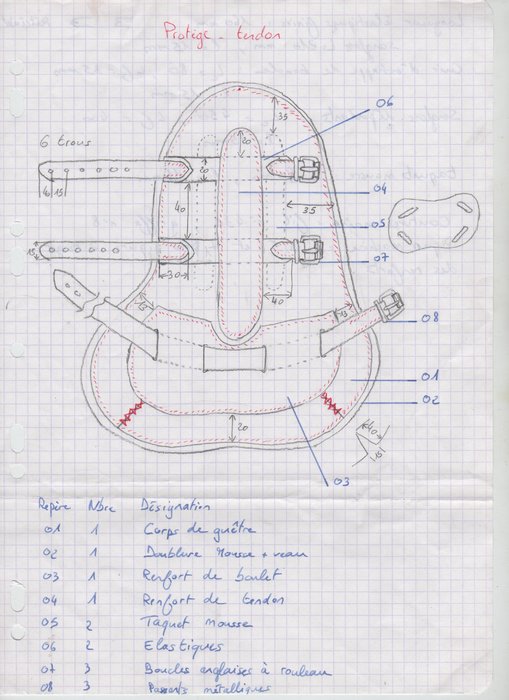 Protège-tendon
06
35
20
6 trous
20
04
10 15
40
35
05
15
07
30
40
15
15
08
01
02
20
40
15
03
Repère Nbre Désignation
01 1 Corps de guêtre
02 1 Doublure Mousse + veau
03 1 Renfort de boulet
04 1 Renfort de tendon
05 2 Taquet mousse
06 2 Elastiques
07 3 Boucles anglaises à rouleau
08 3 Passants métalliques